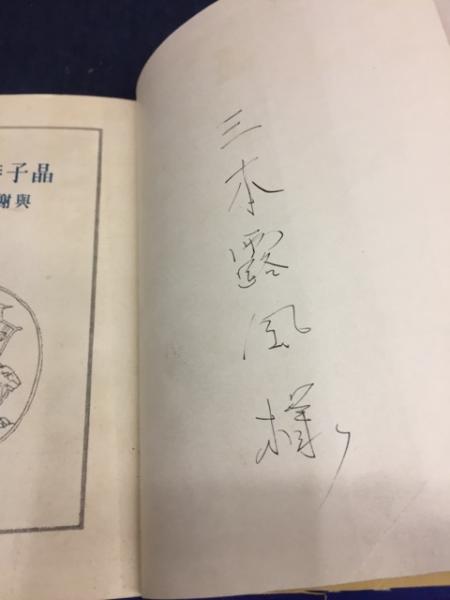 三木露風様
晶子
與謝